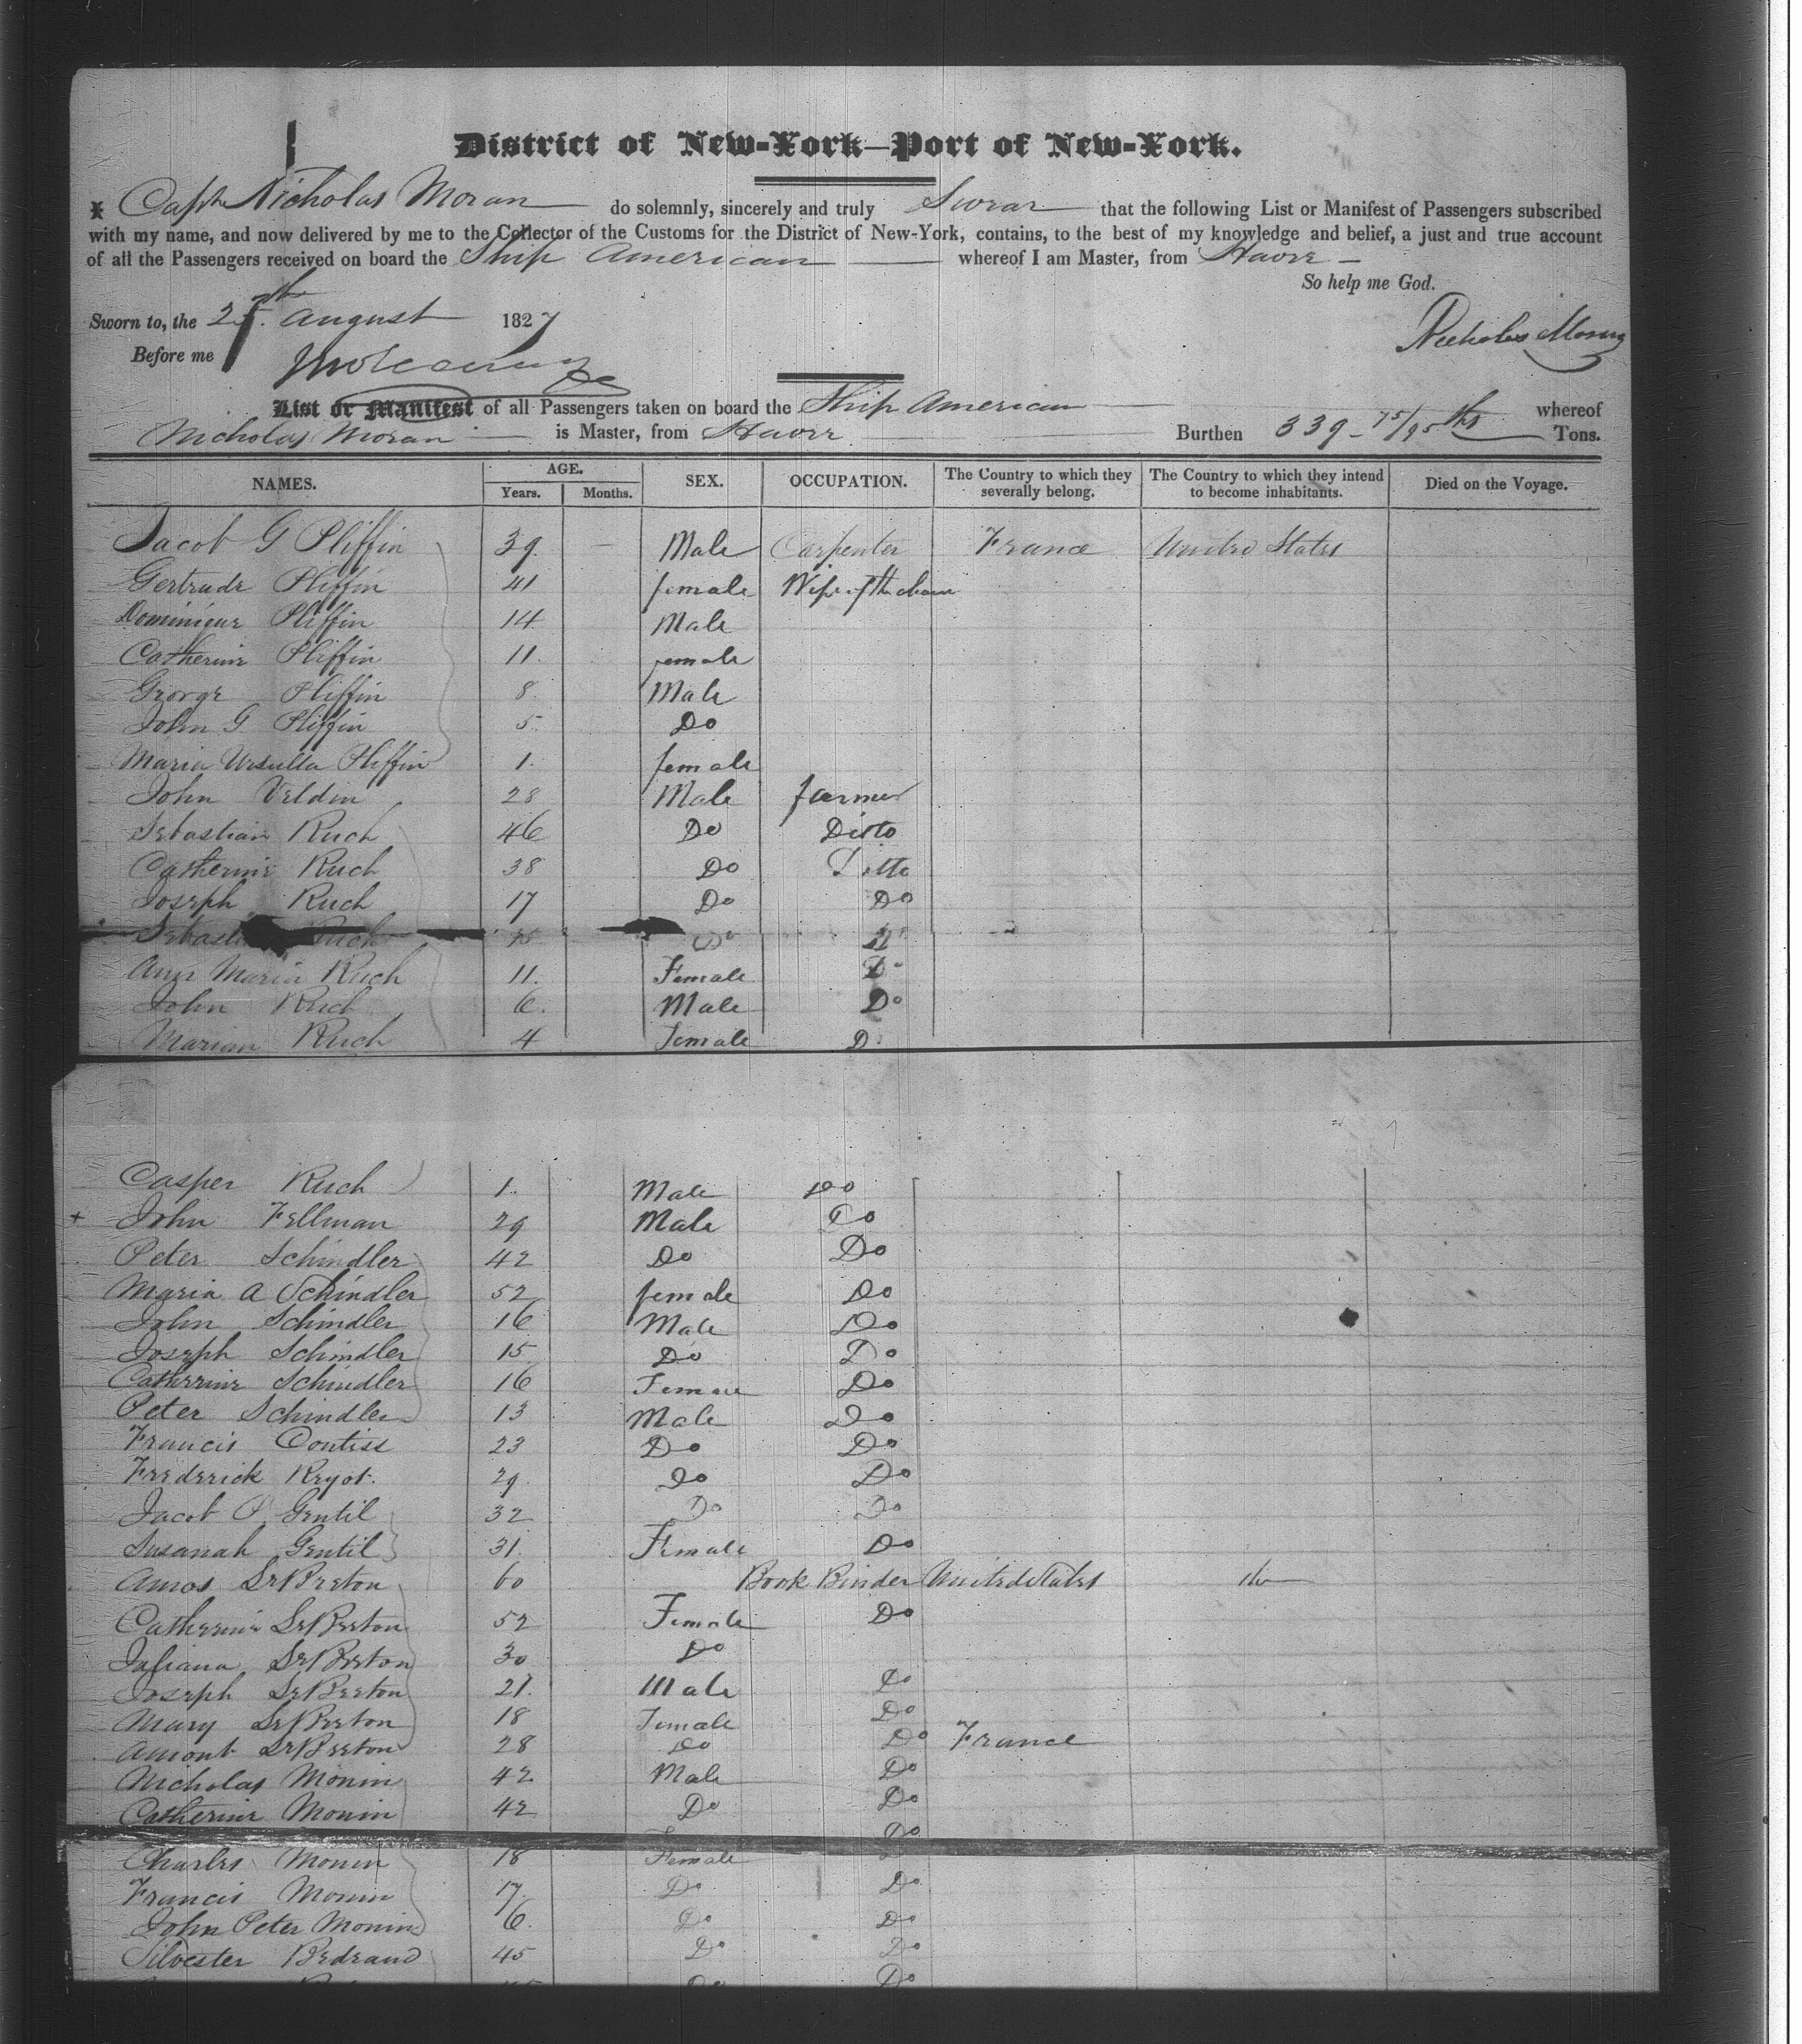 District of New-York—Port of New-York.
I Capt Nicholas Moran do solemnly, sincerely and truly Swear that the following List or Manifest of Passengers subscribed
with my name, and now delivered by me to the Collector of the Customs for the District of New-York, contains, to the best of my knowledge and belief, a just and true account
of all the Passengers received on board the Ship American whereof I am Master, from Havre
So help me God.
Sworn to, the August 1827
Nicholas Moran
Before me
List or Manifest of all Passengers taken on board the Ship American whereof
Nicholas Moran is Master, from Havre Burthen 339-75/95ths Tons.
NAMES. AGE. Years. Months. SEX. OCCUPATION. The Country to which they severally belong. The Country to which they intend to become inhabitants. Died on the Voyage.
Jacob G Pliffin 39 Male Carpenter France United States
Gertrude Pliffin 41 female Wife of the above
Dominique Pliffin 14 Male
Catherine Pliffin 11. female
George Pliffin 8 Male
John G Pliffin 5 Do
Maria Ursulla Pliffin 1. female
John Veldin 28 Male farmer
Sebastian Ruch 46 Do Ditto
Catherine Ruch 38 Do Ditto
Joseph Ruch 17 Do Do
Ruch 15 Do Do
Ann Maria Ruch 11. Female Do
John Ruch 6. Male Do
Marian Ruch 4 Female D
Casper Ruch 1. Male Do
+ John Fellman 29 Male Do
Peter Schindler 42 Do Do
Maria A Schindler 52 female Do
John Schindler 16 Male Do
Joseph Schindler 15 Do Do
Catherine Schindler 16 Female Do
Peter Schindler 13 Male Do
Francis Contiss 23 Do Do
Frederick Reyot. 29 Do Do
Jacob P. Gentil 32 Do Do
Susanah Gentil 31. Female Do
Amos LeBreton 60 Book Binder United States
Catherine LeBreton 52 Female Do
Juliana LeBreton 30 Do
Joseph LeBreton 21. Male Do
Mary LeBreton 18 Female Do
Amont LeBreton 28 Do Do France
Nicholas Monin 42 Male Do
Catherine Monin 42 Do Do
Do
Charles Monin 18 Female
Francis Monin 17 Do Do
John Peter Monin 6. Do Do
Silvester Bedrand 45 Do Do
Do Do